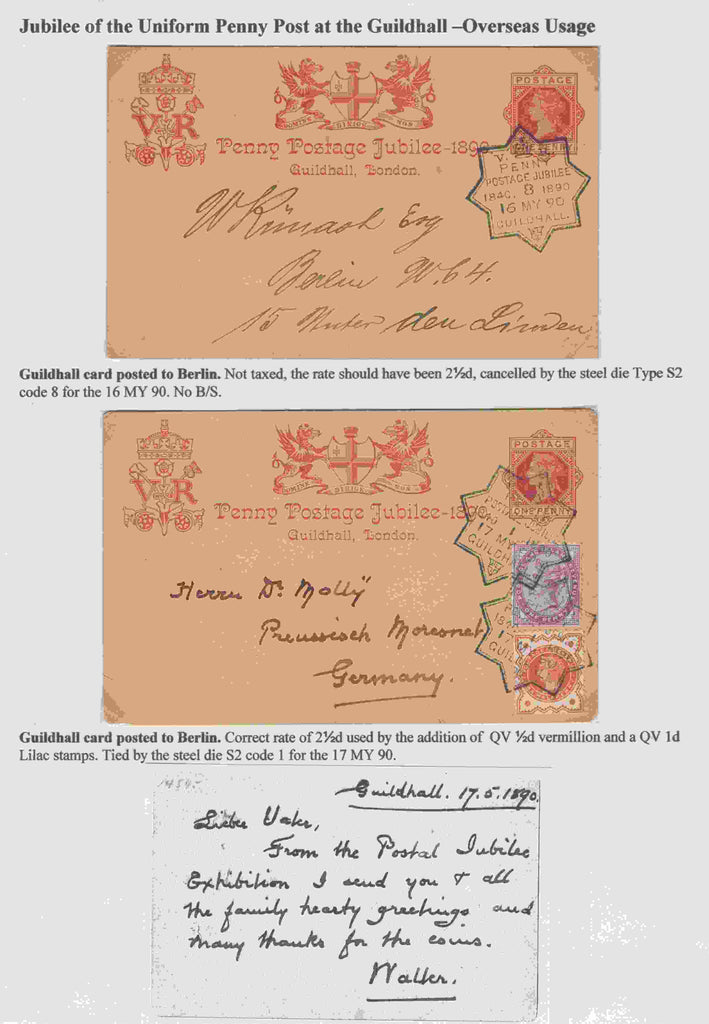 Jubilee of the Uniform Penny Post at the Guildhall –Overseas Usage
V R
DOMINE DIRIGE NOS
POSTAGE
ONE PENNY
Penny Postage Jubilee-1890
Guildhall, London.
V. R.
PENNY
POSTAGE JUBILEE
1840. 8 1890
16 MY 90
GUILDHALL.
W Künast Esq
Berlin W. 64.
15 Unter den Linden
Guildhall card posted to Berlin. Not taxed, the rate should have been 2½d, cancelled by the steel die Type S2
code 8 for the 16 MY 90. No B/S.
V R
DOMINE DIRIGE NOS
POSTAGE
ONE PENNY
Penny Postage Jubilee-1890
Guildhall, London.
17 MY
Herrn Dr. Molly
Preussisch Moresnet
Germany.
Guildhall card posted to Berlin. Correct rate of 2½d used by the addition of QV ½d vermillion and a QV 1d
Lilac stamps. Tied by the steel die S2 code 1 for the 17 MY 90.
Guildhall. 17.5.1890.
Lieber Vater,
From the Postal Jubilee
Exhibition I send you & all
the family hearty greetings and
many thanks for the coins.
Walter.